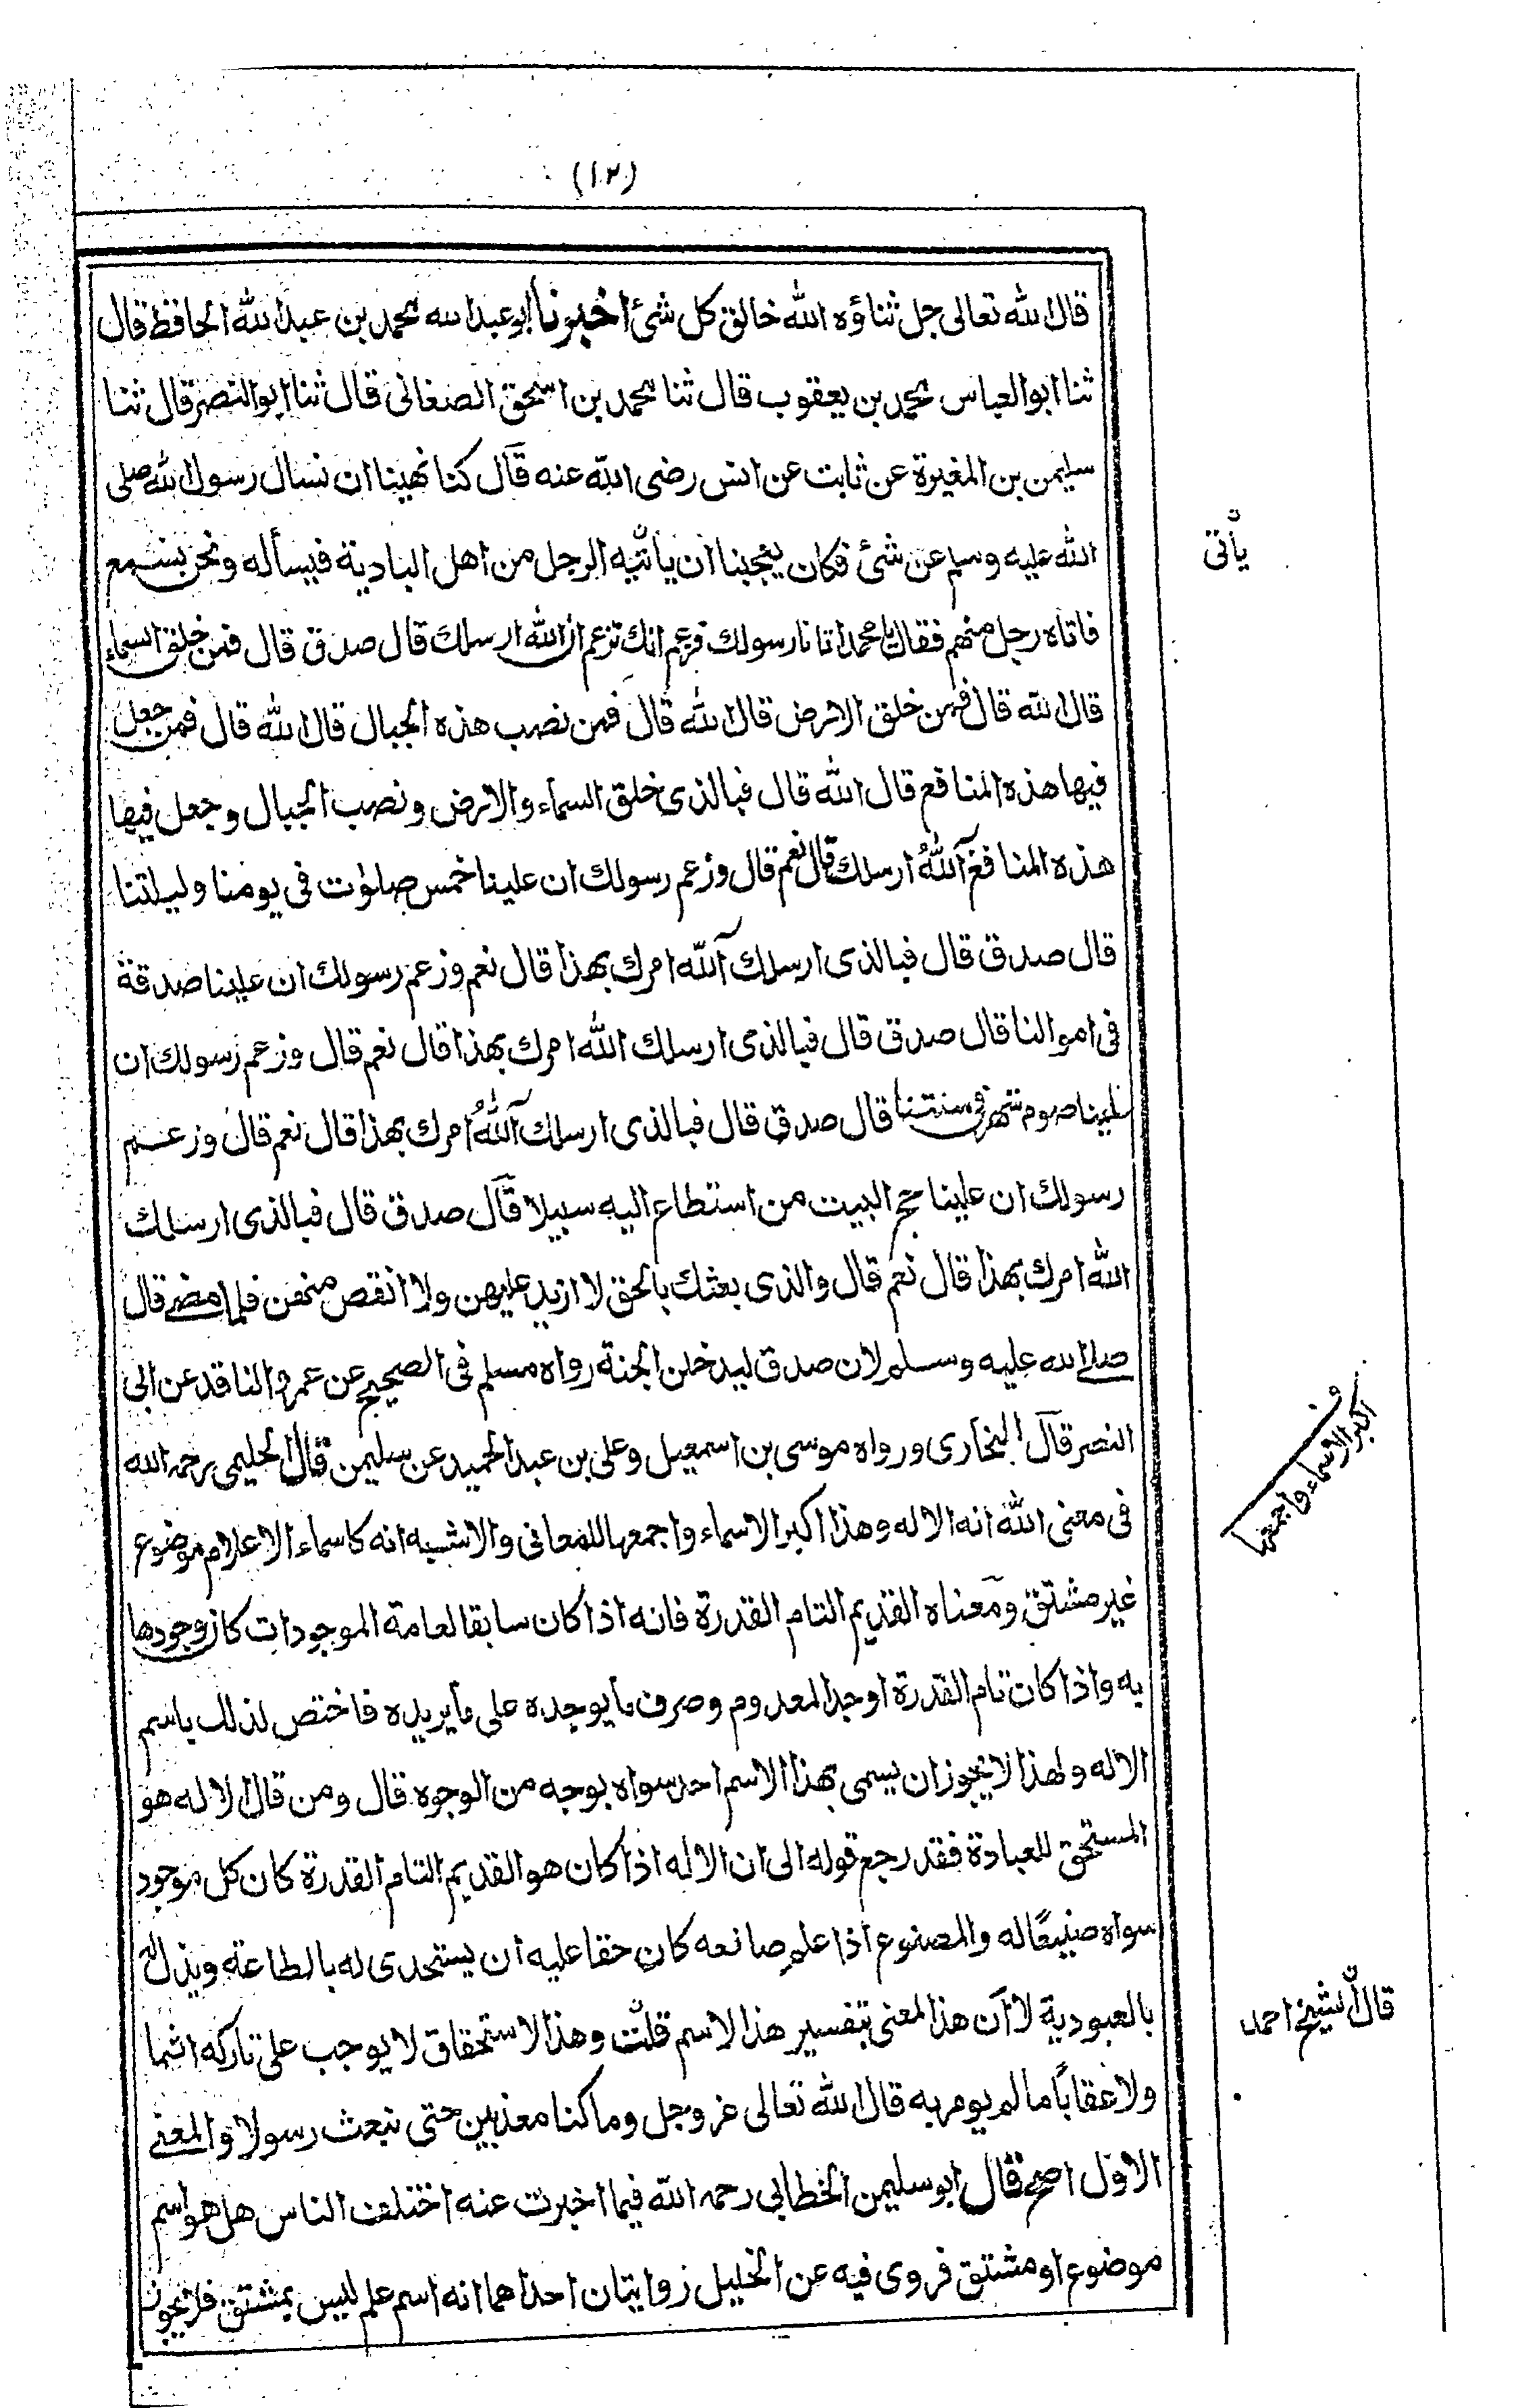 (١٢)
قال الله تعالى جل ثناؤه الله خالق كل شئ اخبرنا ابو عبد الله محمد بن عبد الله الحافظ قال
ثنا ابو العباس محمد بن يعقوب قال ثنا محمد بن اسحق الصغانى قال ثنا ابو النصر قال ثنا
سليمن بن المغيرة عن ثابت عن انس رضى الله عنه قال كنا نهينا ان نسال رسول الله صلى
الله عليه وسلم عن شئ فكان يعجبنا ان ياتيه الرجل من اهل البادية فيسأله ونحن نسمع
يأتى
فاتاه رجل منهم فقال يا محمد اتانا رسولك فزعم انك تزعم ان الله ارسلك قال صدق قال فمن خلق السماء
قال الله قال فمن خلق الارض قال الله قال فمن نصب هذه الجبال قال الله قال فمن جعل
فيها هذه المنافع قال الله قال فبالذى خلق السماء والارض ونصب الجبال وجعل فيها
هذه المنافع آلله ارسلك قال نعم قال وزعم رسولك ان علينا خمس صلوٰت فى يومنا وليلتنا
قال صدق قال فبالذى ارسلك آلله امرك بهذا قال نعم وزعم رسولك ان علينا صدقة
فى اموالنا قال صدق قال فبالذى ارسلك الله امرك بهذا قال نعم قال وزعم رسولك ان
علينا صوم شهر فى سنتنا قال صدق قال فبالذى ارسلك آللهُ امرك بهذا قال نعم قال وزعم
رسولك ان علينا حج البيت من استطاع اليه سبيلا قال صدق قال فبالذى ارسلك
الله امرك بهذا قال نعم قال والذى بعثك بالحق لا ازيد عليهن ولا انقص منهن فلما مضى قال
صلى الله عليه وسلم لان صدق ليدخلن الجنة رواه مسلم فى الصحيح عن عمرو الناقد عن ابى
النصر قال البخارى ورواه موسى بن اسمعيل وعلى بن عبد الحميد عن سليمن قال الحليمى رحمه الله
فى معنى الله انه الاله وهذا اكبر الاسماء واجمعها للمعانى والاشبه انه كاسماء الاعلام موضوع
ف
اكبر الاسماء واجمعها
غير مشتق ومعناه القديم التام القدرة فانه اذا كان سابقا لعامة الموجودات كان وجودها
به واذا كان تام القدرة اوجد المعدوم وصرف ما يوجده على ما يريده فاختص لذلك باسم
الاله ولهذا لا يجوز ان يسمى بهذا الاسم احد سواه بوجه من الوجوه قال ومن قال الاله هو
المستحق للعبادة فقد رجع قوله الى ان الاله اذا كان هو القديم التام القدرة كان كل موجود
سواه صنيعًا له والمصنوع اذا علم صانعه كان حقا عليه ان يستخذى له بالطاعة ويذل له
بالعبودية لا ان هذا المعنى بتفسير هذا الاسم قلت وهذا الاستحقاق لا يوجب على تاركه اثما
قال الشيخ احمد
ولا عقابًا ما لم يومر به قال الله تعالى عز وجل وما كنا معذبين حتى نبعث رسولا والمعنى
الاول اصح قال ابو سليمن الخطابى رحمه الله فيما اخبرت عنه اختلف الناس هل هو اسم
موضوع او مشتق فروى فيه عن الخليل روايتان احداهما انه اسم علم ليس بمشتق فلا يجوز